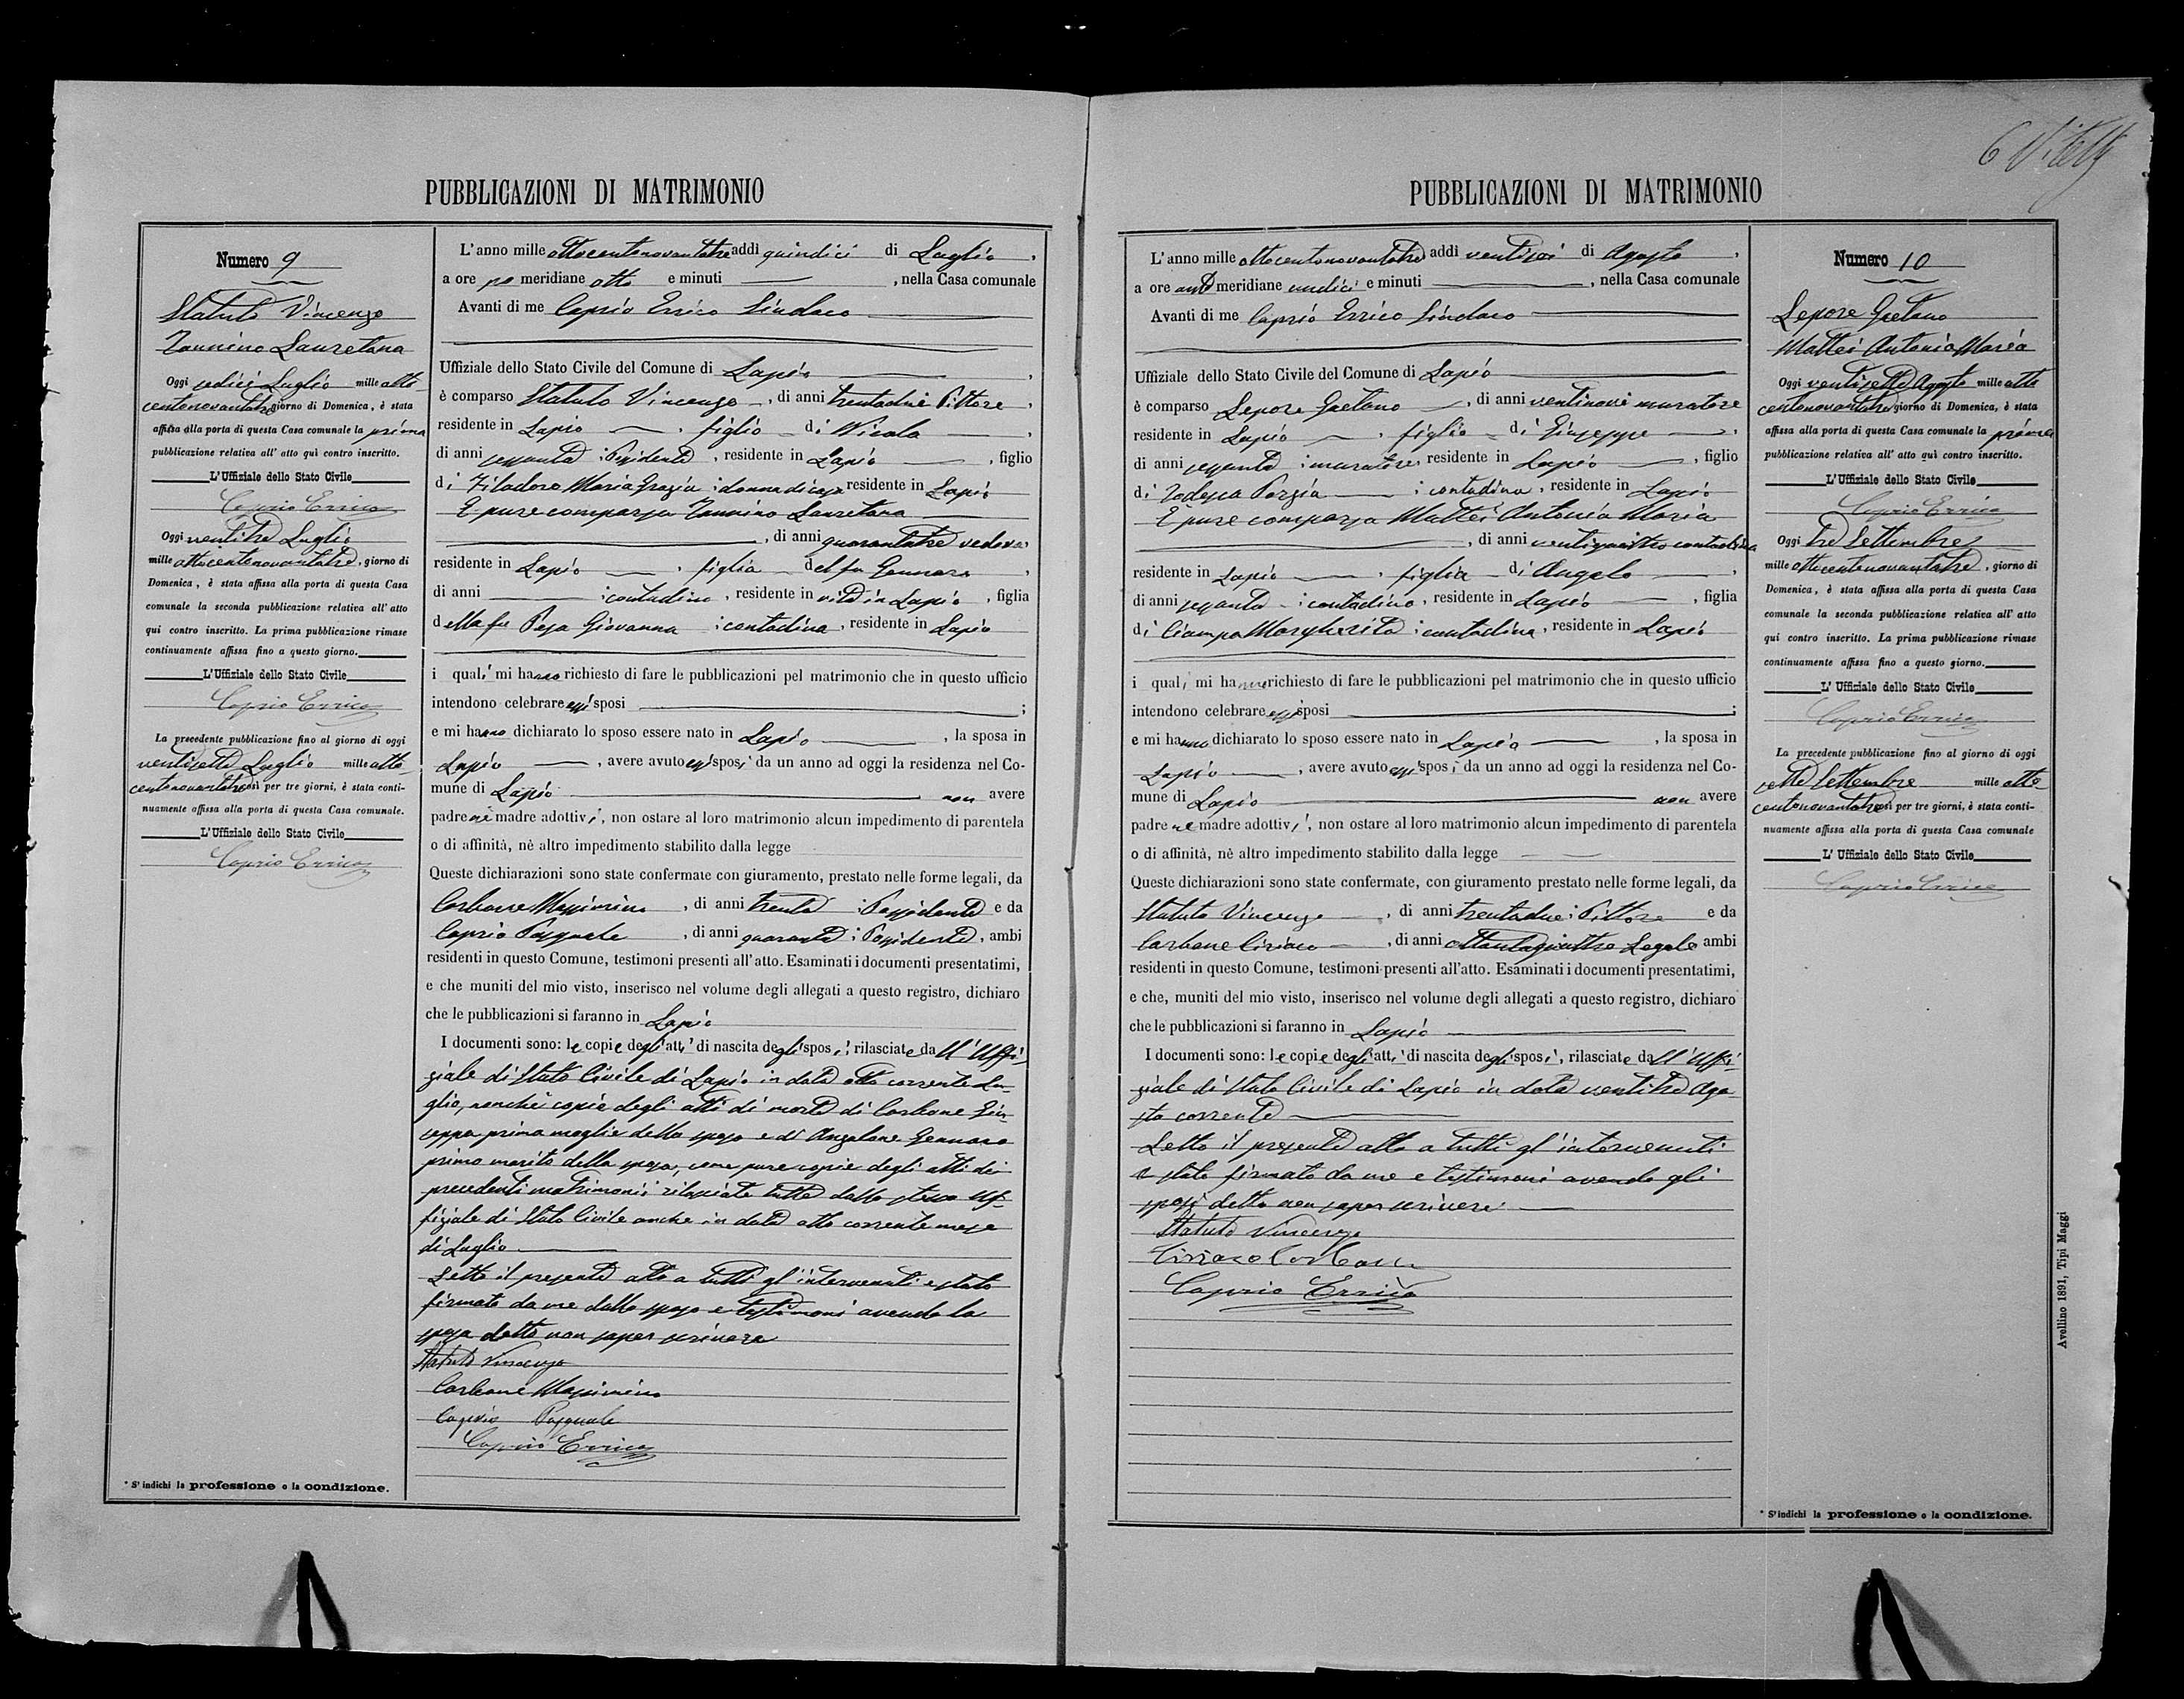 PUBBLICAZIONI DI MATRIMONIO
Numero 9
Statuto Vincenzo
Iannino Lauretana
Oggi sedici Luglio mille otto
centonovantatre giorno di Domenica, è stata
affissa alla porta di questa Casa comunale la prima
pubblicazione relativa all' atto quì contro inscritto.
L'Uffiziale dello Stato Civile
Caprio Errico
Oggi ventitre Luglio
mille ottocentonovantatre, giorno di
Domenica, è stata affissa alla porta di questa Casa
comunale la seconda pubblicazione relativa all' atto
qui contro inscritto. La prima pubblicazione rimase
continuamente affissa fino a questo giorno.
L'Uffiziale dello Stato Civile
Caprio Errico
La precedente pubblicazione fino al giorno di oggi
ventisette Luglio mille otto
centonovantatre così per tre giorni, è stata conti-
nuamente affissa alla porta di questa Casa comunale.
L'Uffiziale dello Stato Civile
Caprio Errico
* S'indichi la professione o la condizione.
L'anno mille ottocentonovantatre addì quindici di Luglio,
a ore po meridiane otto e minuti , nella Casa comunale
Avanti di me Caprio Errico Sindaco
Uffiziale dello Stato Civile del Comune di Lapio,
è comparso Statuto Vincenzo, di anni trentadue Pittore,
residente in Lapio, figlio di Nicola,
di anni sessanta Possidente, residente in Lapio, figlio
di Filadoro Maria Grazia donna di casa residente in Lapio
È pure comparsa Iannino Lauretana
, di anni quarantatre vedova
residente in Lapio, figlia del fu Gennaro,
di anni contadino, residente in vita in Lapio, figlia
della fu Pisa Giovanna contadina, residente in Lapio
i quali mi hanno richiesto di fare le pubblicazioni pel matrimonio che in questo ufficio
intendono celebrare essi sposi ;
e mi hanno dichiarato lo sposo essere nato in Lapio, la sposa in
Lapio, avere avuto essi sposi da un anno ad oggi la residenza nel Co-
mune di Lapio non avere
padre nè madre adottivi, non ostare al loro matrimonio alcun impedimento di parentela
o di affinità, nè altro impedimento stabilito dalla legge
Queste dichiarazioni sono state confermate con giuramento, prestato nelle forme legali, da
Carbone Massimino, di anni trenta Possidente e da
Caprio Pasquale, di anni quaranta Possidente, ambi
residenti in questo Comune, testimoni presenti all'atto. Esaminati i documenti presentatimi,
e che muniti del mio visto, inserisco nel volume degli allegati a questo registro, dichiaro
che le pubblicazioni si faranno in Lapio
I documenti sono: le copie degli atti di nascita degli sposi, rilasciate dall'Uffi-
ziale di Stato Civile di Lapio in data otto corrente Lu-
glio, nonchè copie degli atti di morte di Carbone Giu-
seppa prima moglie dello sposo e di Angelone Gennaro
primo marito della sposa, come pure copie degli atti dei
precedenti matrimonii rilasciate tutte dallo stesso Uf-
fiziale di Stato Civile anche in data otto corrente mese
di Luglio
Letto il presente atto a tutti gl'intervenuti è stato
firmato da me dallo sposo e testimoni avendo la
sposa detto non saper scrivere
Statuto Vincenzo
Carbone Massimino
Caprio Pasquale
Caprio Errico
PUBBLICAZIONI DI MATRIMONIO
L'anno mille ottocentonovantatre addì ventisei di Agosto,
a ore anti meridiane undici e minuti , nella Casa comunale
Avanti di me Caprio Errico Sindaco
Uffiziale dello Stato Civile del Comune di Lapio
è comparso Lepore Gaetano, di anni ventinove muratore
residente in Lapio, figlio di Giuseppe,
di anni sessanta muratore, residente in Lapio, figlio
di Todesca Porzia contadina, residente in Lapio
È pure comparsa Mattei Antonia Maria
, di anni ventiquattro contadina
residente in Lapio, figlia di Angelo,
di anni sessanta contadino, residente in Lapio, figlia
di Ciampa Margherita contadina, residente in Lapio
i quali mi hanno richiesto di fare le pubblicazioni pel matrimonio che in questo ufficio
intendono celebrare essi sposi ;
e mi hanno dichiarato lo sposo essere nato in Lapio, la sposa in
Lapio, avere avuto essi sposi da un anno ad oggi la residenza nel Co-
mune di Lapio non avere
padre nè madre adottivi, non ostare al loro matrimonio alcun impedimento di parentela
o di affinità, nè altro impedimento stabilito dalla legge
Queste dichiarazioni sono state confermate, con giuramento prestato nelle forme legali, da
Statuto Vincenzo, di anni trentadue Pittore e da
Carbone Ciriaco, di anni ottantaquattro Legale ambi
residenti in questo Comune, testimoni presenti all'atto. Esaminati i documenti presentatimi,
e che, muniti del mio visto, inserisco nel volume degli allegati a questo registro, dichiaro
che le pubblicazioni si faranno in Lapio
I documenti sono: le copie degli atti di nascita degli sposi, rilasciate dall'Uffi-
ziale di Stato Civile di Lapio in data ventitre Ago-
sto corrente
Letto il presente atto a tutti gl'intervenuti
è stato firmato da me e testimoni avendo gli
sposi detto non saper scrivere
Statuto Vincenzo
Ciriaco Carbone
Caprio Errico
Numero 10
Lepore Gaetano
Mattei Antonia Maria
Oggi ventisette Agosto mille otto
centonovantatre giorno di Domenica, è stata
affissa alla porta di questa Casa comunale la prima
pubblicazione relativa all' atto quì contro inscritto.
L'Uffiziale dello Stato Civile
Caprio Errico
Oggi tre Settembre
mille ottocentonovantatre, giorno di
Domenica, è stata affissa alla porta di questa Casa
comunale la seconda pubblicazione relativa all' atto
qui contro inscritto. La prima pubblicazione rimase
continuamente affissa fino a questo giorno.
L' Uffiziale dello Stato Civile
Caprio Errico
La precedente pubblicazione fino al giorno di oggi
sette Settembre mille otto
centonovantatre così per tre giorni, è stata conti-
nuamente affissa alla porta di questa Casa comunale
L' Uffiziale dello Stato Civile
Caprio Errico
* S'indichi la professione o la condizione.
Avellino 1891, Tipi Maggi